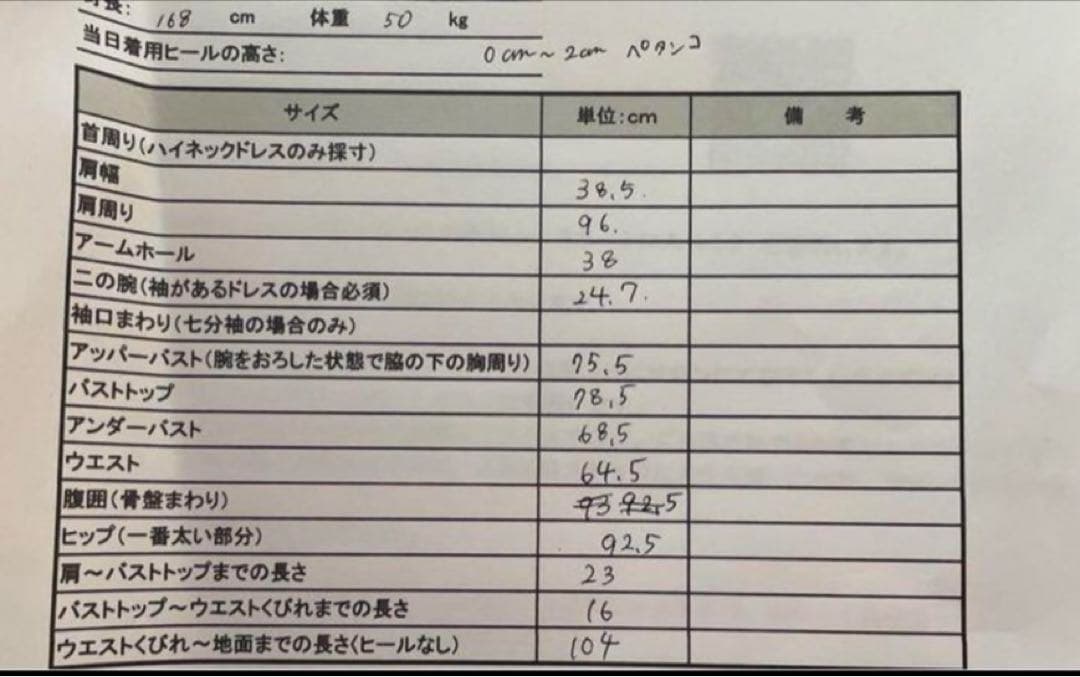 身長: 168 cm 体重 50 kg
当日着用ヒールの高さ: 0cm～2cm ペタンコ
サイズ 単位:cm 備考
首周り(ハイネックドレスのみ採寸)
肩幅 38.5.
肩周り 96.
アームホール 38
二の腕(袖があるドレスの場合必須) 24.7.
袖口まわり(七分袖の場合のみ)
アッパーバスト(腕をおろした状態で脇の下の胸周り) 75.5
バストトップ 78.5
アンダーバスト 68.5
ウエスト 64.5
腹囲(骨盤まわり) 93 92.5
ヒップ(一番太い部分) 92.5
肩～バストトップまでの長さ 23
バストトップ～ウエストくびれまでの長さ 16
ウエストくびれ～地面までの長さ(ヒールなし) 104